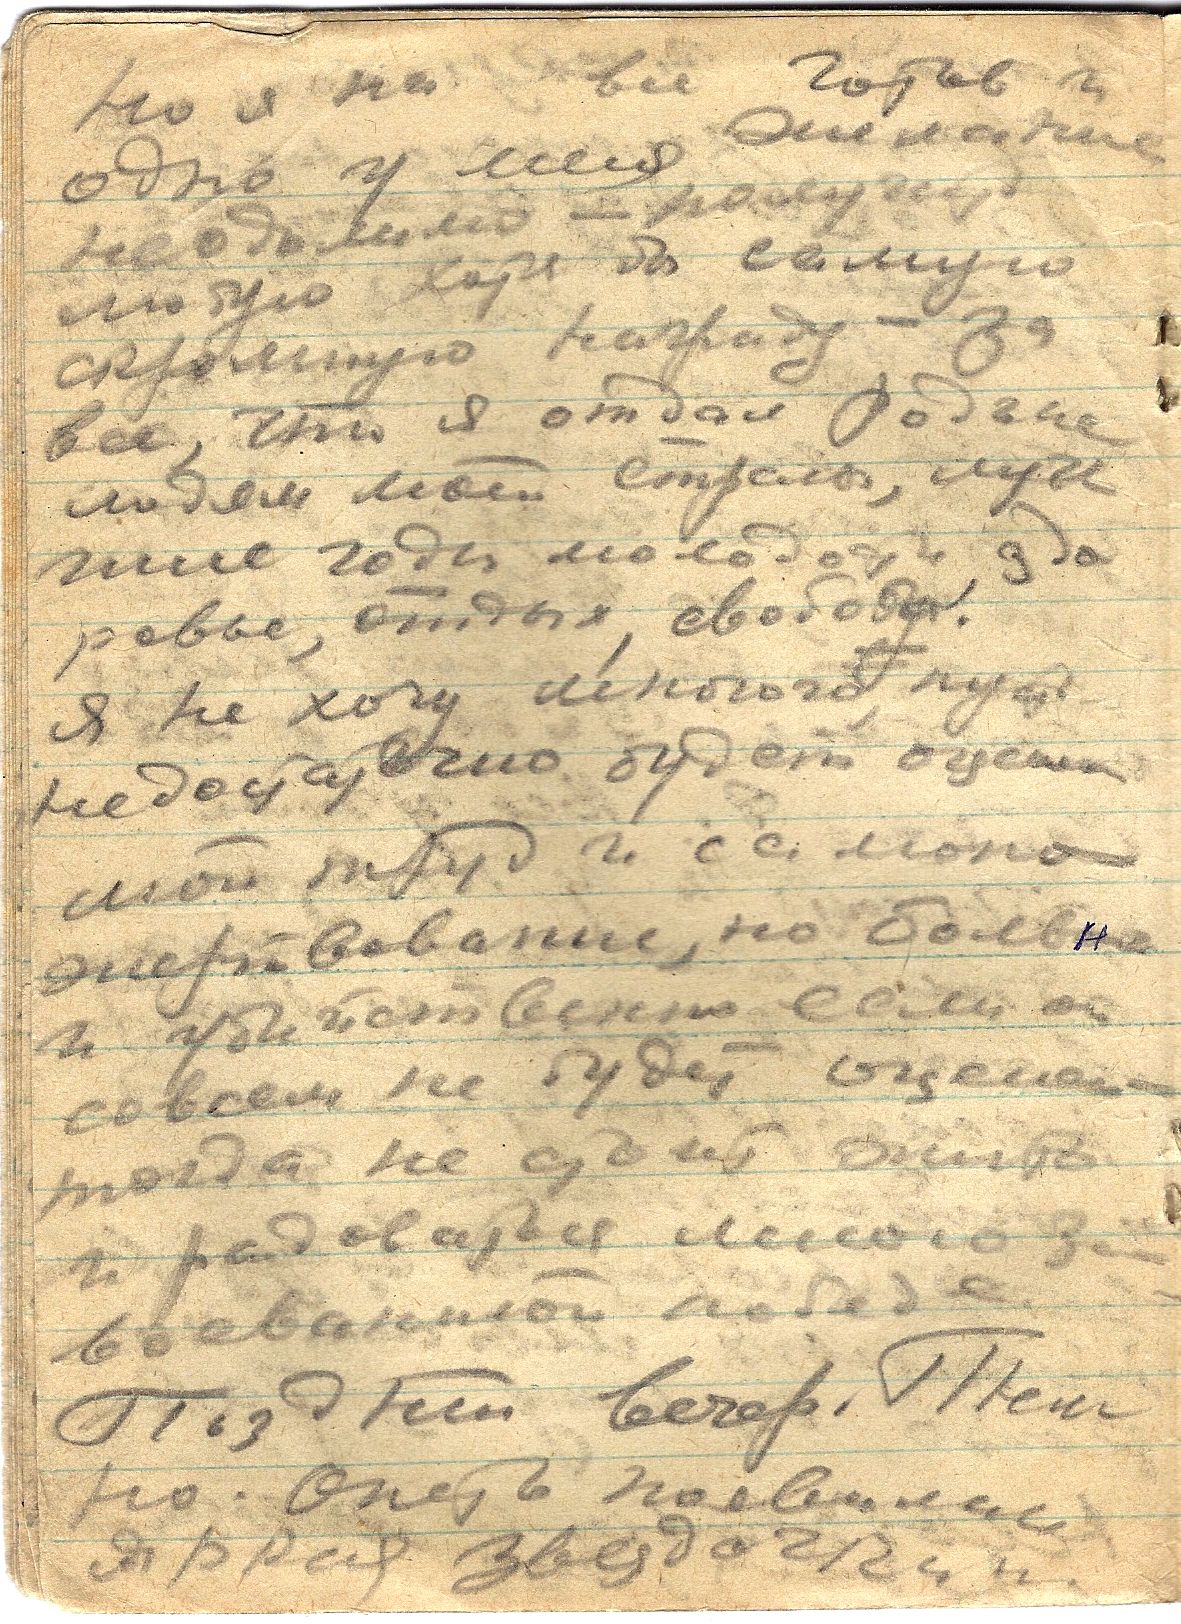 Но я на все готов и
одно у меня желание
неодолимо - получить
любую хотя бы самую
скромную награду - за
все, что я отдал Родине
людям моей страны, луч
шие годы молодости, здо
ровье, отдых, свободу.
Я не хочу многого, пусть
недостаточно будет оценен
мой труд и самопо
жертвование, но больно
и убийственно если он
совсем не будет оценен
тогда не стоит жить
и радоваться мною за
воеванной победе.
Поздний вечер. Темн
но. Опять появились
яркие звездочки и